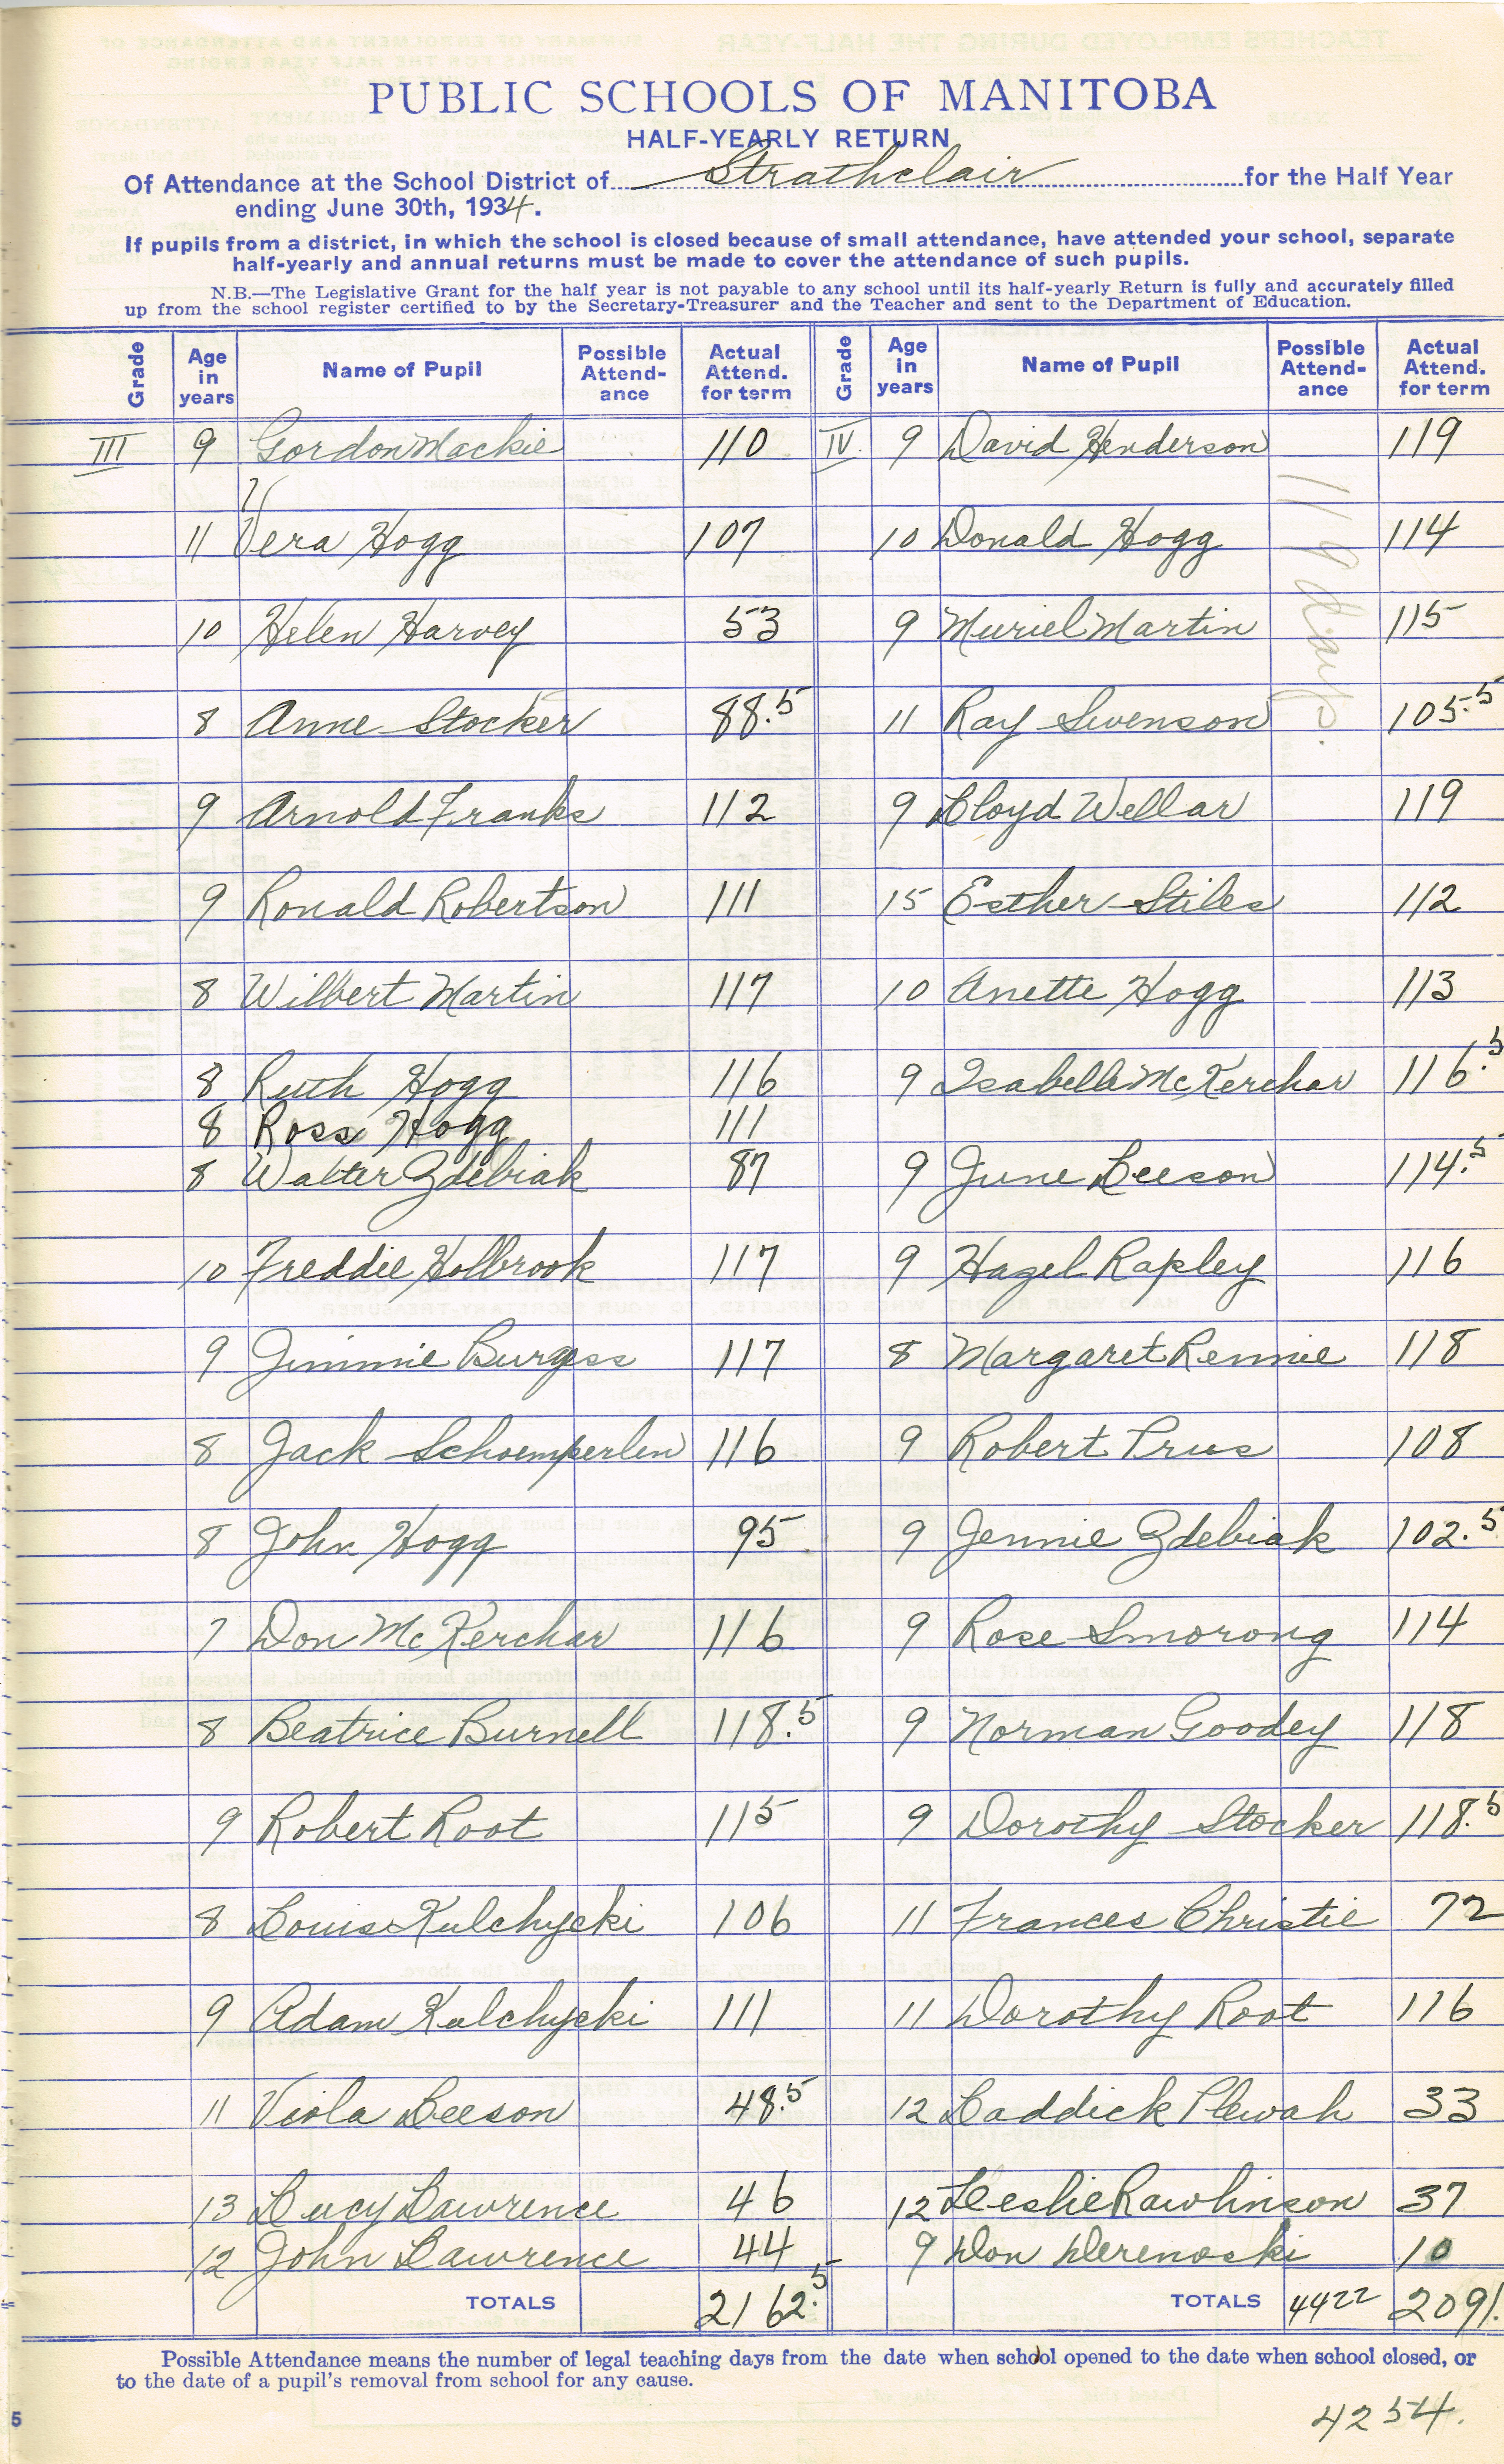 PUBLIC SCHOOLS OF MANITOBA
HALF-YEARLY RETURN
Of Attendance at the School District of Strathclair for the Half Year
ending June 30th, 1934.
If pupils from a district, in which the school is closed because of small attendance, have attended your school, separate
half-yearly and annual returns must be made to cover the attendance of such pupils.
N.B.—The Legislative Grant for the half year is not payable to any school until its half-yearly Return is fully and accurately filled
up from the school register certified to by the Secretary-Treasurer and the Teacher and sent to the Department of Education.
Grade Age in years Name of Pupil Possible Attend-ance Actual Attend. for term Grade Age in years Name of Pupil Possible Attend-ance Actual Attend. for term
III 9 Gordon Mackie 110 IV. 9 David Henderson 119
119 days.
11 Vera Hogg 107 10 Donald Hogg 114
10 Helen Harvey 53 9 Muriel Martin 115
8 Anne Stocker 88.5 11 Ray Swenson 105.5
9 Arnold Franks 112 9 Lloyd Wellar 119
9 Ronald Robertson 111 15 Esther Stiles 112
8 Wilbert Martin 117 10 Anette Hogg 113
8 Ruth Hogg 116 9 Isabelle McKerchar 116.5
8 Ross Hogg 111
8 Walter Zdebiak 87 9 June Leeson 114.5
10 Freddie Holbrook 117 9 Hazel Rapley 116
9 Jimmie Burgess 117 8 Margaret Rennie 118
8 Jack Schoemperlen 116 9 Robert Prus 108
8 John Hogg 95 9 Jennie Zdebiak 102.5
7 Don McKerchar 116 9 Rose Smorong 114
8 Beatrice Burnell 118.5 9 Norman Goodey 118
9 Robert Root 115 9 Dorothy Stocker 118.5
8 Louis Kulchycki 106 11 Frances Christie 72
9 Adam Kulchycki 111 11 Dorothy Root 116
11 Viola Leeson 48.5 12 Laddick Plewah 33
13 Lucy Lawrence 46 12 Leslie Rawlinson 37
12 John Lawrence 44 9 Don Derenoski 10
TOTALS 2162.5 TOTALS 4422 2091.
Possible Attendance means the number of legal teaching days from the date when school opened to the date when school closed, or
to the date of a pupil's removal from school for any cause.
4254.
5